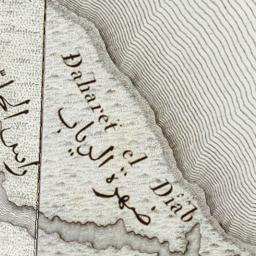 Đaharet el Diâb
ضهرة الدياب
راس الحلق